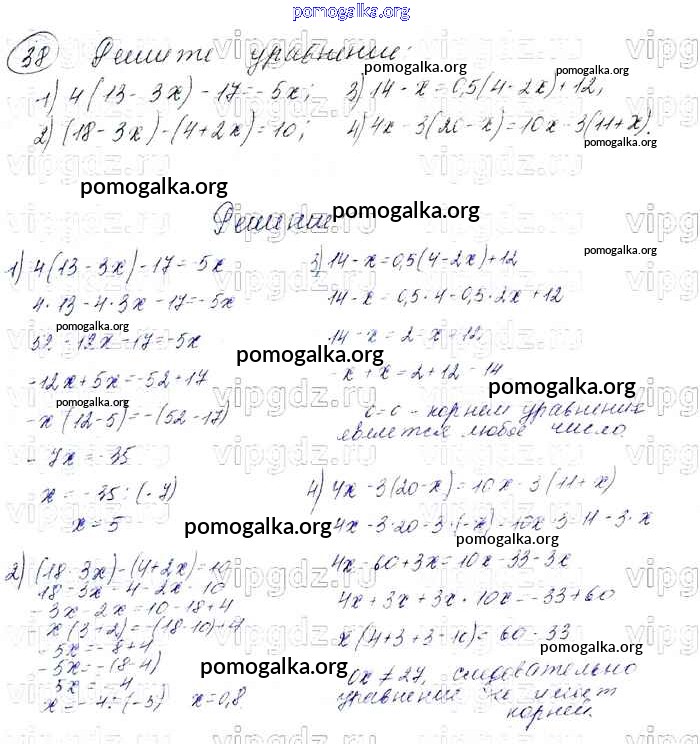 pomogalka.org
38 Решите уравнение:
1) 4(13 - 3x) - 17 = -5x; 3) 14 - x = 0,5(4 - 2x) + 12;
2) (18 - 3x) - (4 + 2x) = 10; 4) 4x - 3(20 - x) = 10x - 3(11 + x).
Решение
1) 4(13 - 3x) - 17 = -5x
4 · 13 - 4 · 3x - 17 = -5x
52 - 12x - 17 = -5x
-12x + 5x = -52 + 17
-x(12 - 5) = -(52 - 17)
-7x = -35
x = -35 : (-7)
x = 5
2) (18 - 3x) - (4 + 2x) = 10
18 - 3x - 4 - 2x = 10
-3x - 2x = 10 - 18 + 4
-x(3 + 2) = -(18 - 10) + 4
-5x = -8 + 4
-5x = -(8 - 4)
-5x = -4
x = -4 : (-5) x = 0,8.
3) 14 - x = 0,5(4 - 2x) + 12
14 - x = 0,5 · 4 - 0,5 · 2x + 12
14 - x = 2 - x + 12
-x + x = 2 + 12 - 14
0 = 0 - корнем уравнения
является любое число.
4) 4x - 3(20 - x) = 10x - 3(11 + x)
4x - 3 · 20 - 3 · (-x) = 10x - 3 · 11 - 3 · x
4x - 60 + 3x = 10x - 33 - 3x
4x + 3x + 3x - 10x = -33 + 60
x(4 + 3 + 3 - 10) = 60 - 33
0x ≠ 27, следовательно
уравнение не имеет
корней.